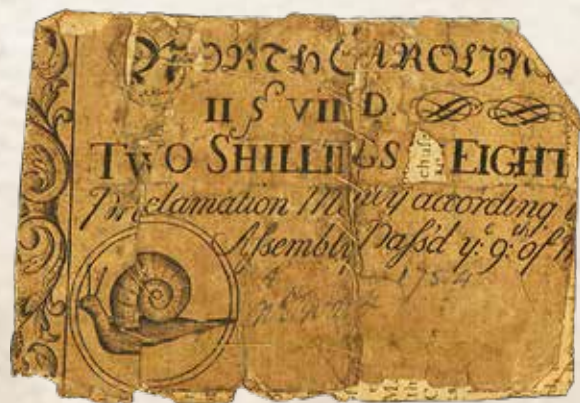 NORTH CAROLIN
II S VIII D.
TWO SHILLINGS EIGHT
Proclamation Money according
Assembly Pass'd y:e 9:th of
1754